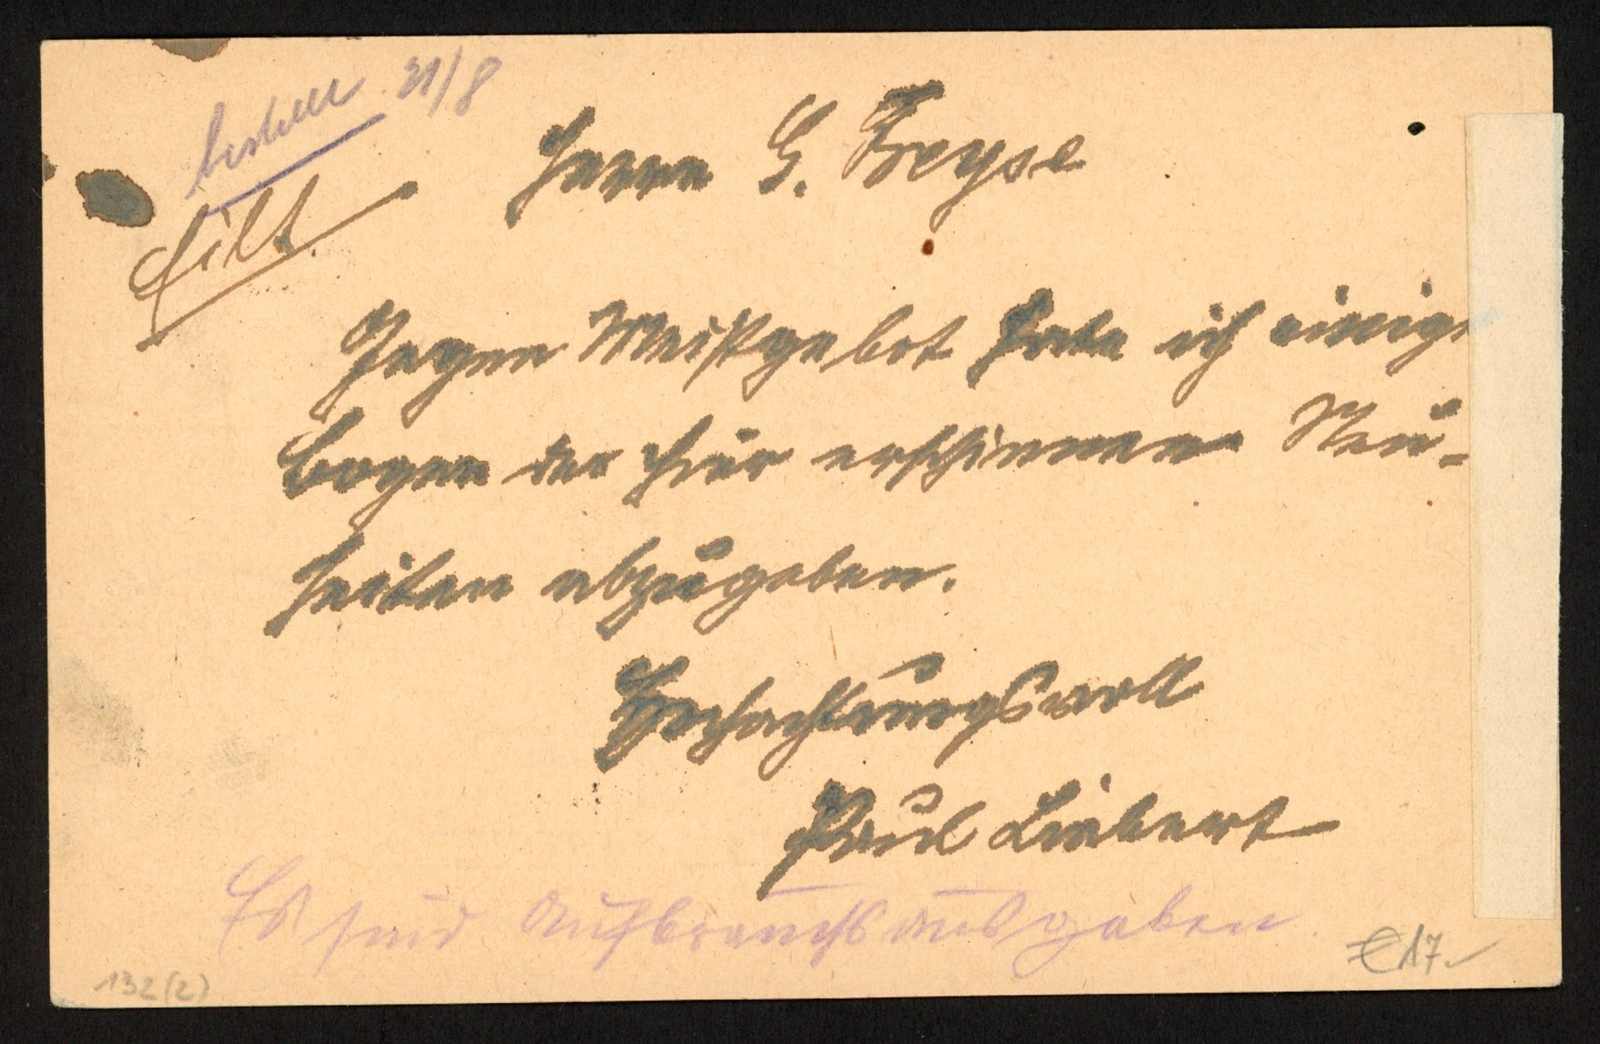 bestellt 31/8
Eilt
Herrn G. Freyse
Gegen Meistgebot habe ich einige
Bogen der hier erschienenen Neu-
heiten abzugeben.
Hochachtungsvoll
Paul Liebert
Es sind Aufbrauchsausgaben
132(2)
€ 17.-